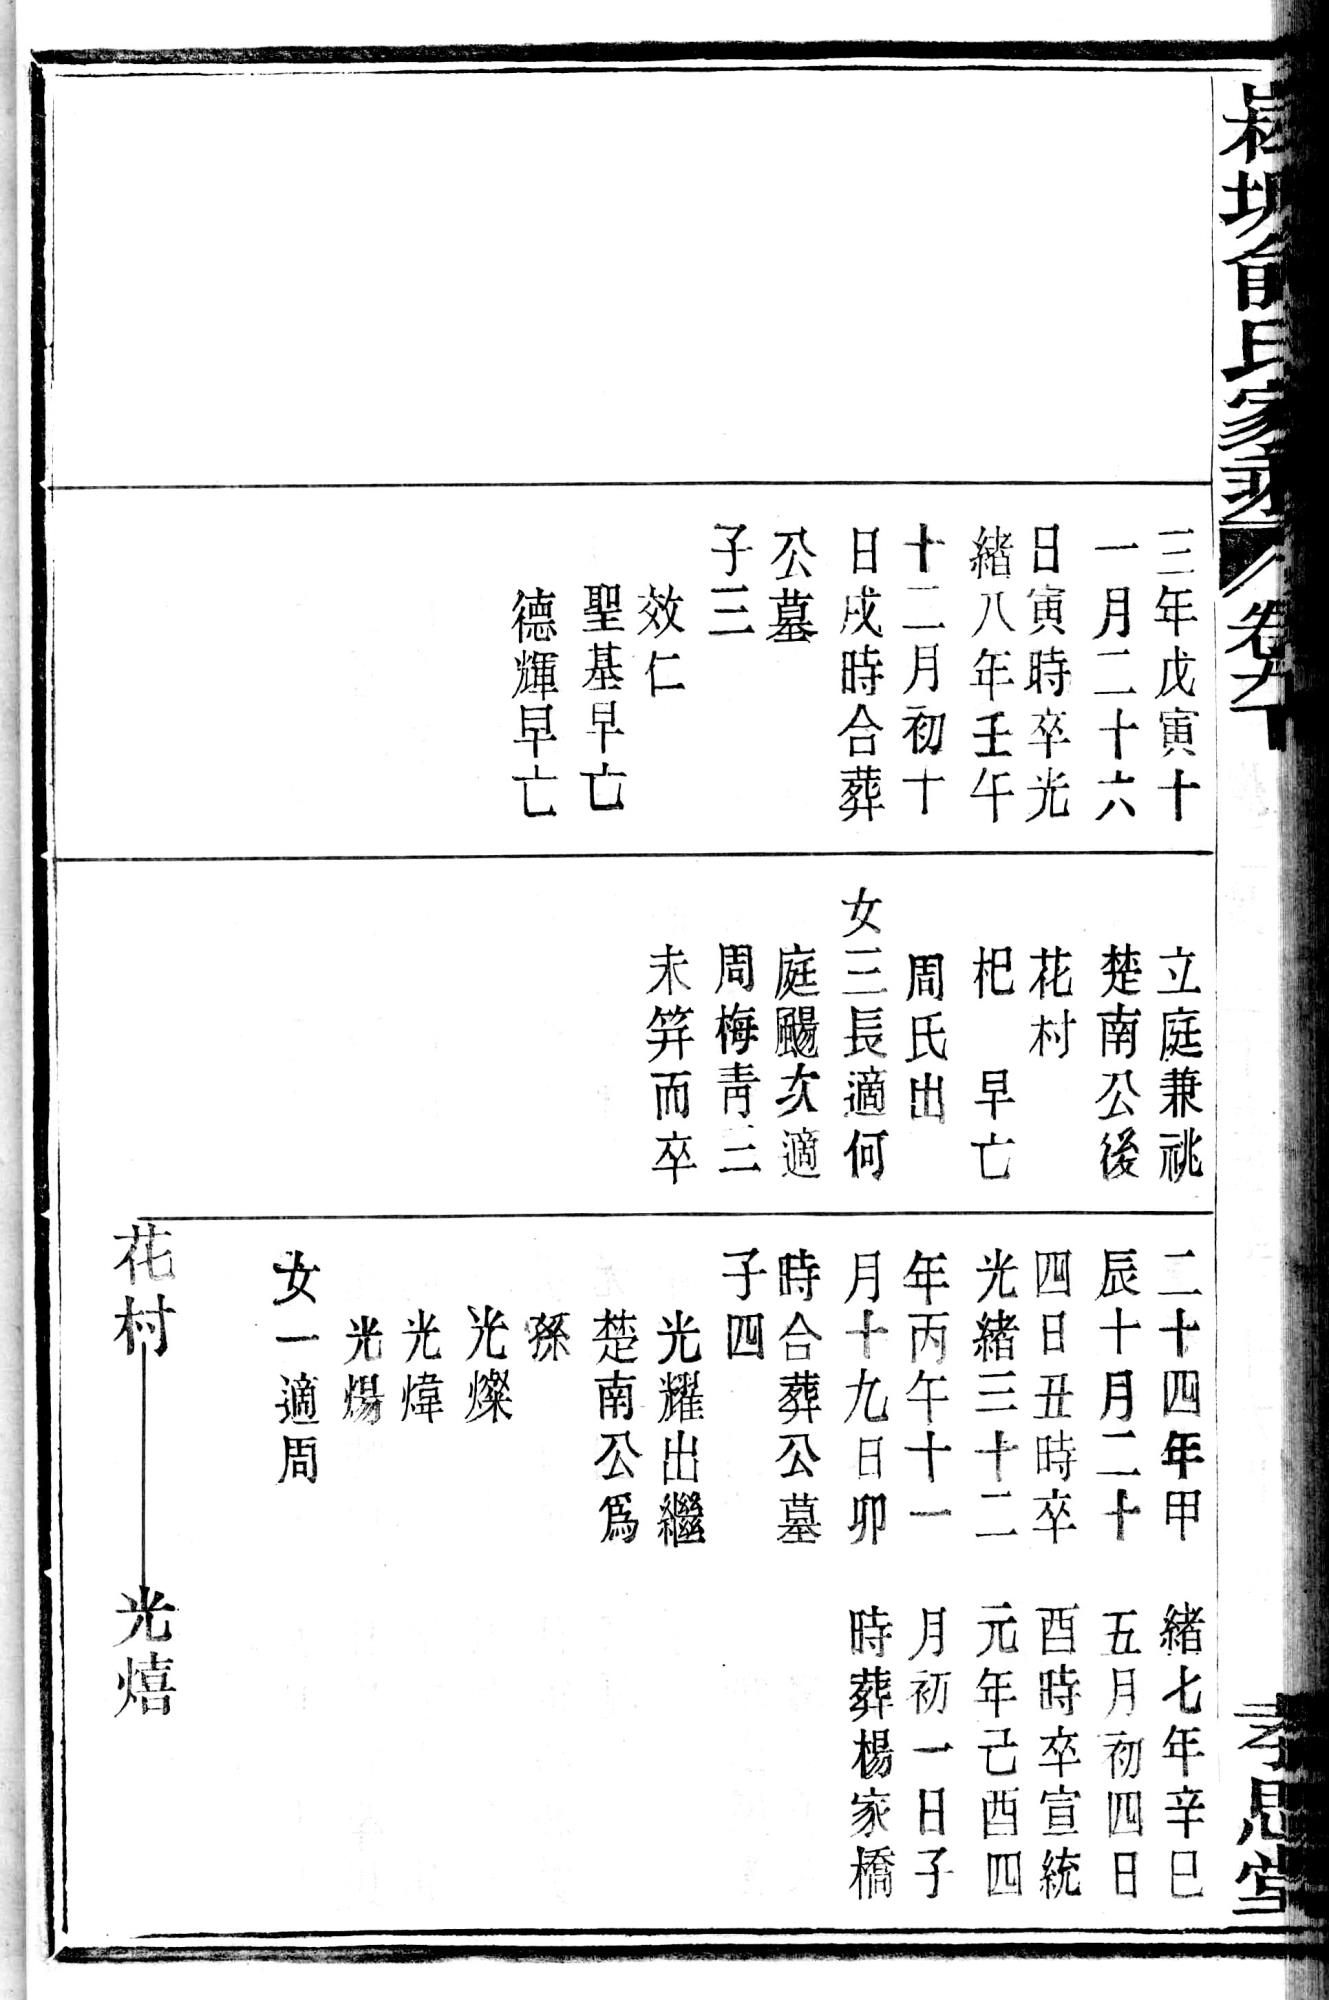 俞氏家
卷九十
三年戊寅十
一月二十六
日寅時卒光
緒八年壬午
十二月初十
日戌時合葬
公墓
子三
效仁
聖基早亡
德輝早亡
立庭兼祧
楚南公後
花村
杞 早亡
周氏出
女三長適何
庭颺次適
周梅青三
未笄而卒
二十四年甲
辰十月二十
四日丑時卒
光緒三十二
年丙午十一
月十九日卯
時合葬公墓
子四
光耀出繼
楚南公爲
孫
光燦
光煒
光煬
女一適周
緒七年辛巳
五月初四日
酉時卒宣統
元年己酉四
月初一日子
時葬楊家橋
花村 光熺
孝思堂